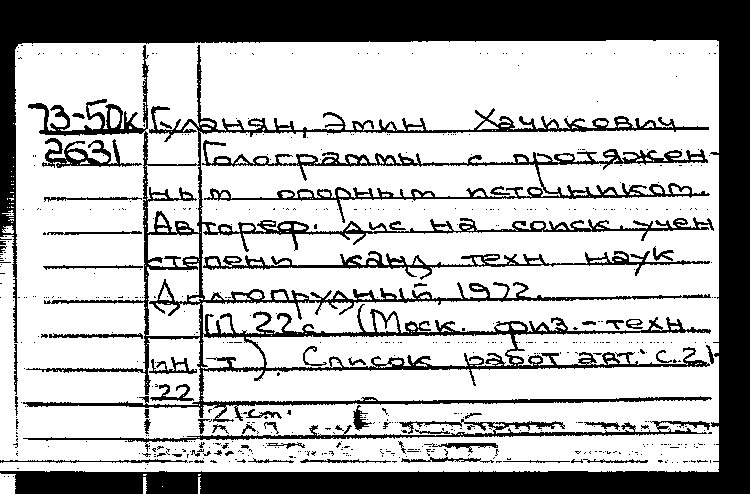 73-50к Гуланян, Эмин Хачикович
2631 Голограммы с протяжен-
ным опорным источником.
Автореф. дис. на соиск. учен
степени канд. техн наук
Долгопрудный, 1972.
22 с. (Моск. физ.-техн.
ин-т). Список работ авт.: с. 21-
22
21 cm.